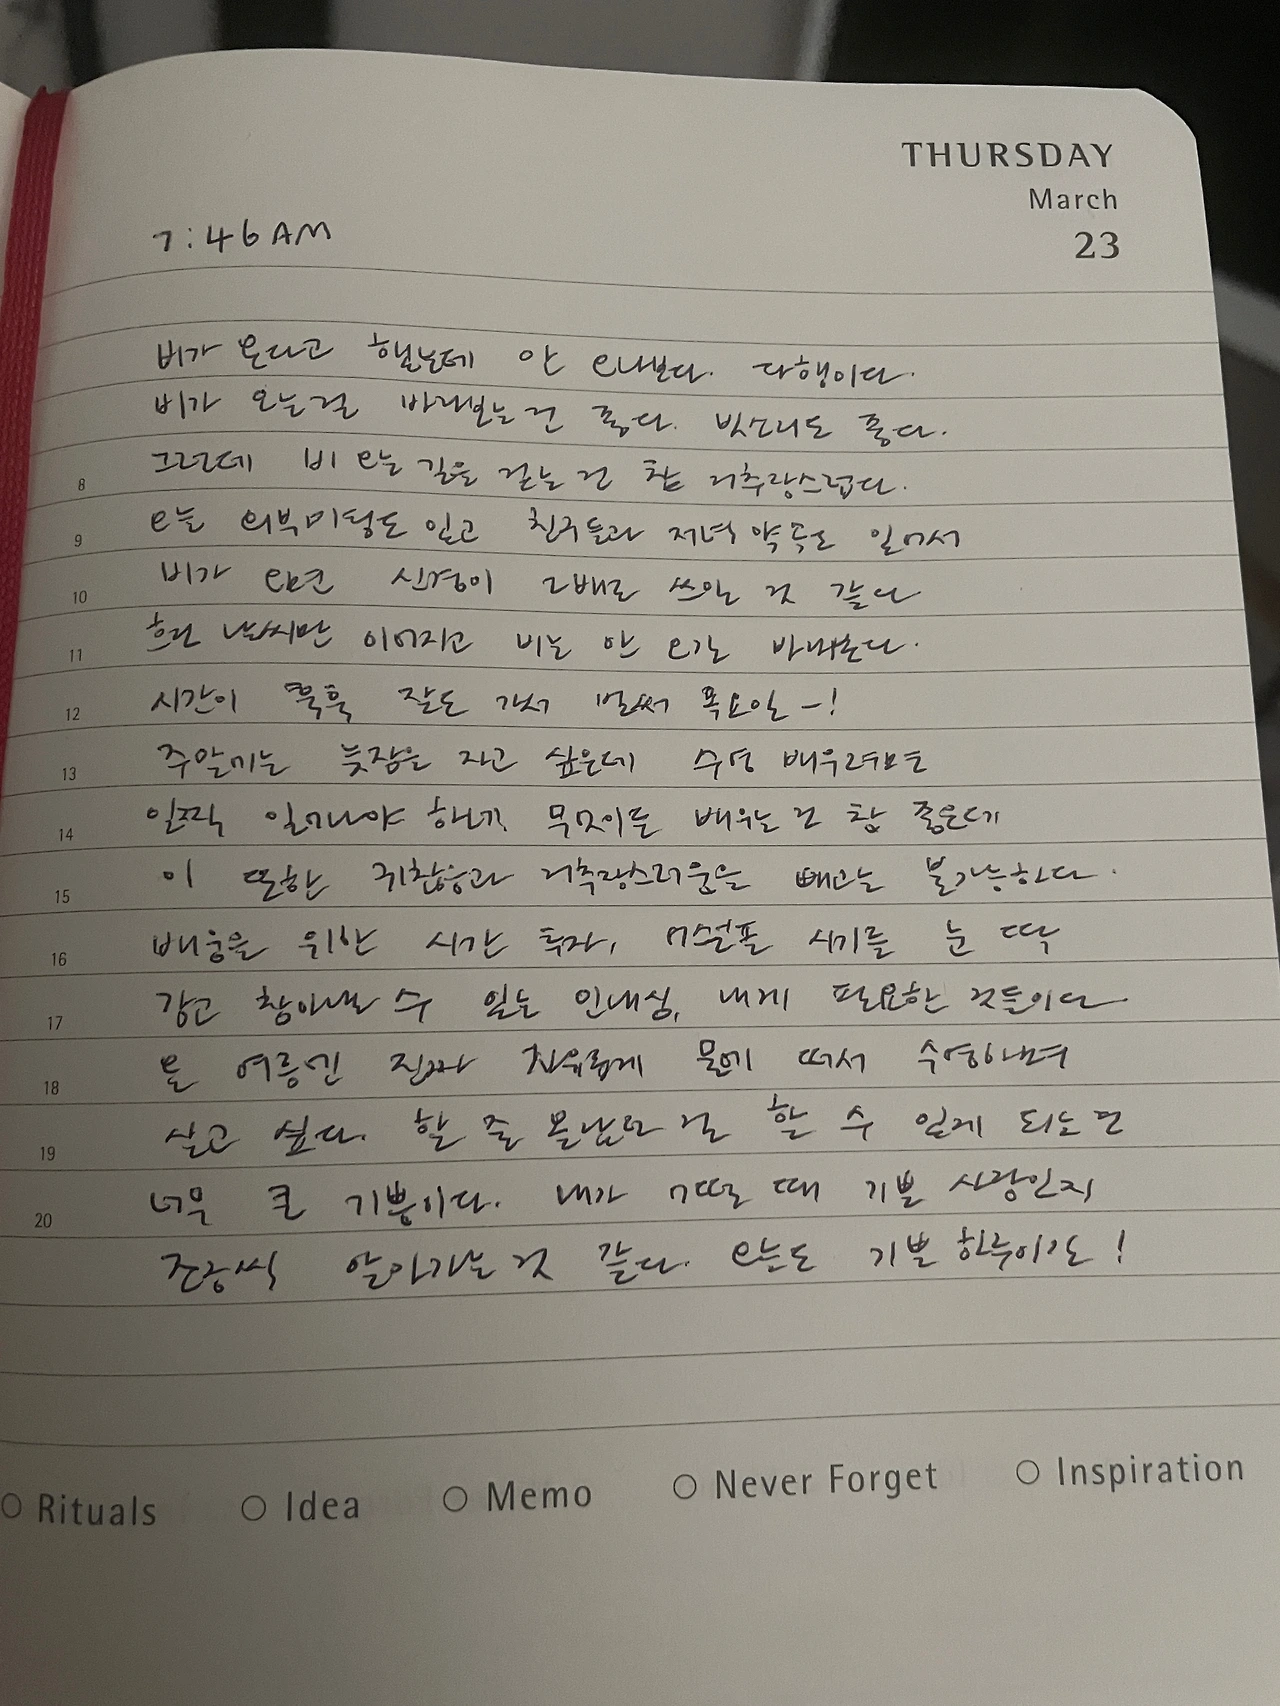 THURSDAY
March
23
7:46AM
비가 온다고 했는데 안 오나보다. 다행이다.
비가 오는걸 바라보는 건 좋다. 빗소리도 좋다.
8 그런데 비 오는 길을 걷는 건 참 거추장스럽다.
9 오늘 외부미팅도 있고 친구들과 저녁 약속도 있어서
10 비가 오면 신경이 2배로 쓰일 것 같다
11 흐린 날씨만 이어지고 비는 안 오길 바래본다.
12 시간이 훅훅 잘도 가서 벌써 목요일-!
13 주말에는 늦잠을 자고 싶은데 수영 배우려면
14 일찍 일어나야 하네? 무엇이든 배우는 건 참 좋은데
15 이 또한 귀찮음과 거추장스러움을 빼고는 불가능하다.
16 배움을 위한 시간 투자, 어설픈 시기를 눈 딱
17 감고 참아낼 수 있는 인내심, 내게 필요한 것들이다
18 올 여름엔 진짜 자유롭게 물에 떠서 수영하며
19 살고 싶다. 할 줄 몰랐던 걸 할 수 있게 되는 건
20 너무 큰 기쁨이다. 내가 어떨 때 기쁜 사람인지
조금씩 알아가는 것 같다. 오늘도 기쁜 하루이기도!
Rituals
Idea
Memo
Never Forget
Inspiration